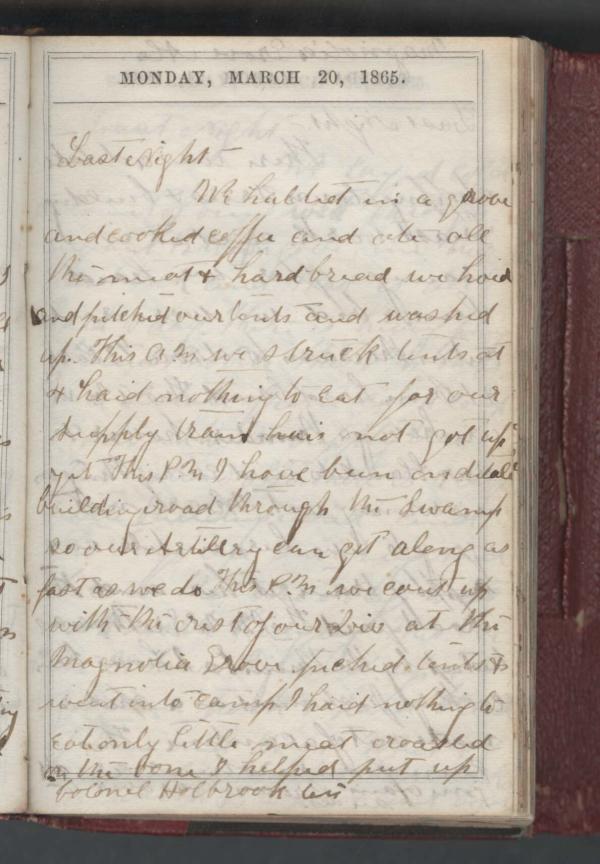 MONDAY, MARCH 20, 1865.
Last Night
We halted in a grove
and cooked coffee and ate all
the meat & hard bread we had
and pitched our tents and washed
up. This A.M we struck tents at
& had nothing to eat for our
supply train has not got up
yet This P.M I have been on detail
building road through the Swamp
so our Artillery can get along as
fast as we do This P.M we cout up
with the rest of our Div at the
Magnolia Grove piched tents &
went into camp I had nothing to
eat only little meat croased
on the bone I helped put up
Colonel Holbrook